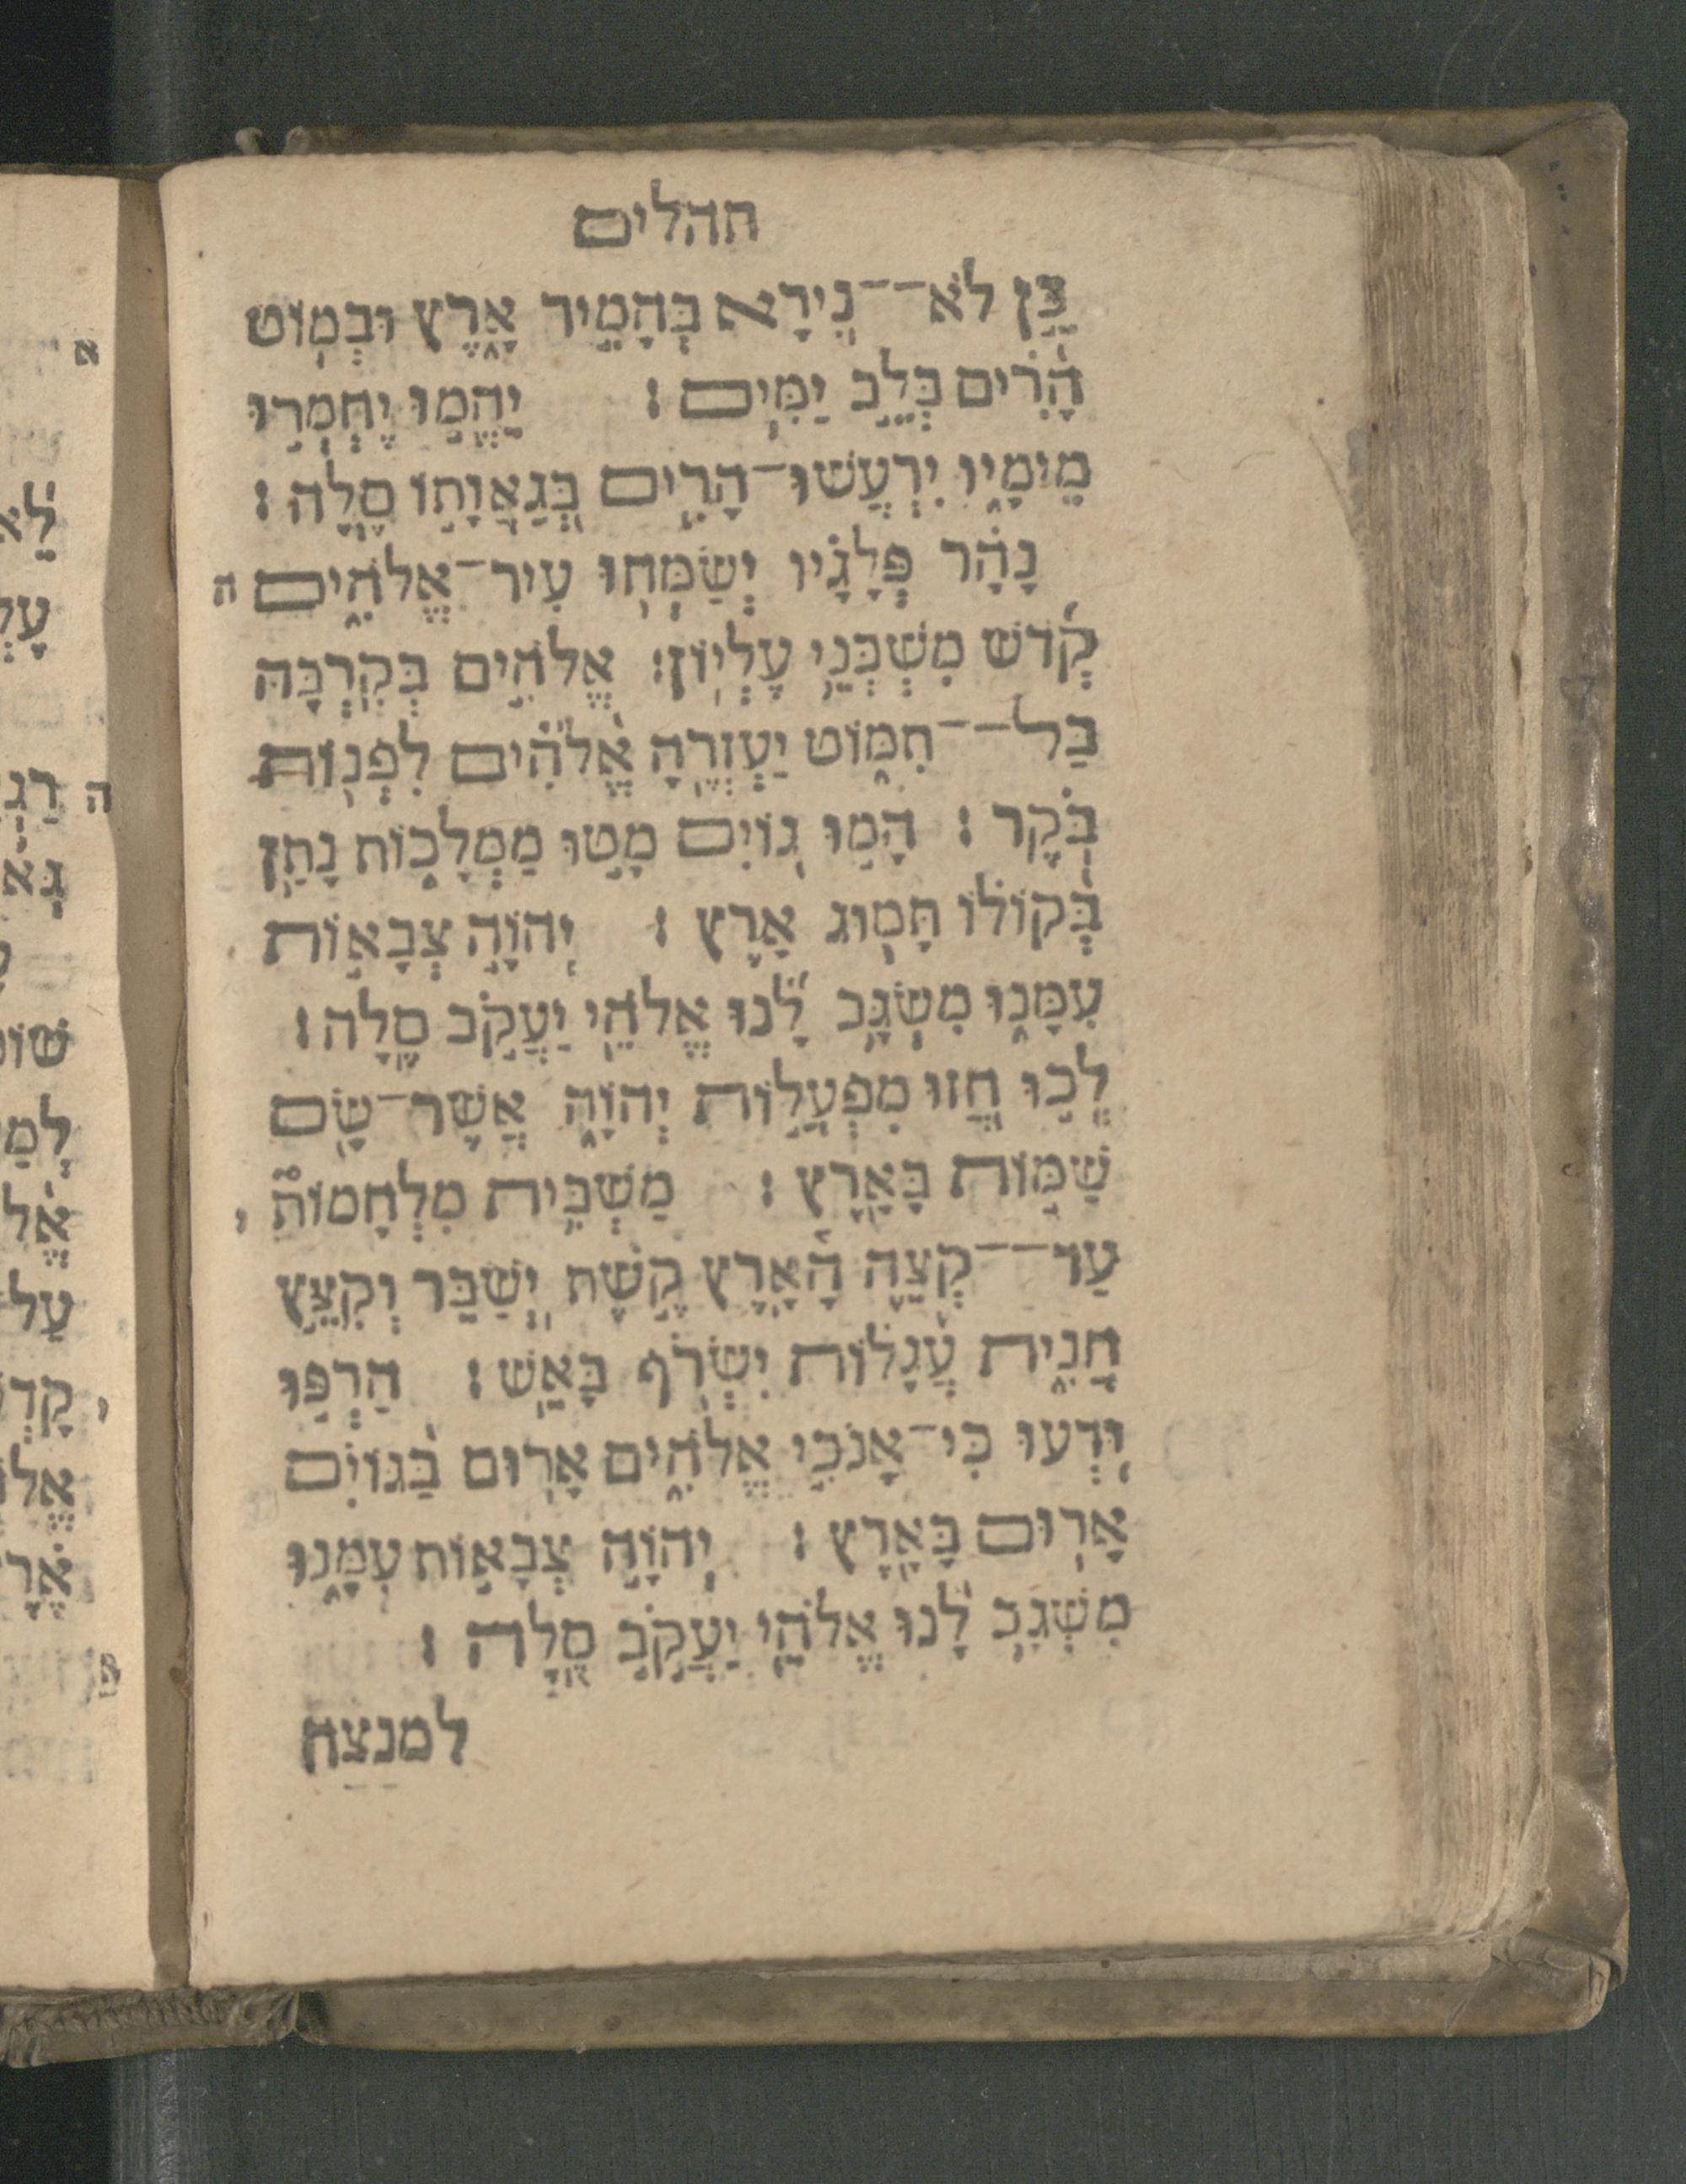 תהלים
כֵּן לֹא־־נִירָא בְּהָמִיר אָרֶץ וּבְמוֹט
הָרִים בְּלֵב יַמִּים׃ יֶהֱמוּ יֶחְמְרוּ
מֵימָיו יִרְעֲשׁוּ־הָרִים בְּגַאֲוָתוֹ סֶלָה׃
נָהָר פְּלָגָיו יְשַׂמְּחוּ עִיר־אֱלֹהִים ה
קְדֹשׁ מִשְׁכְּנֵי עֶלְיוֹן׃ אֱלֹהִים בְּקִרְבָּהּ
בַּל־־תִּמּוֹט יַעְזְרֶהָ אֱלֹהִים לִפְנוֹת
בֹּקֶר׃ הָמוּ גוֹיִם מָטוּ מַמְלָכוֹת נָתַן
בְּקוֹלוֹ תָּמוּג אָרֶץ׃ יְהוָה צְבָאוֹת
עִמָּנוּ מִשְׂגָּב לָנוּ אֱלֹהֵי יַעֲקֹב סֶלָה׃
לְכוּ חֲזוּ מִפְעֲלוֹת יְהוָה אֲשֶׁר־שָׂם
שַׁמּוֹת בָּאָרֶץ׃ מַשְׁבִּית מִלְחָמוֹת י
עַד־־קְצֵה הָאָרֶץ קֶשֶׁת יְשַׁבֵּר וְקִצֵּץ
חֲנִית עֲגָלוֹת יִשְׂרֹף בָּאֵשׁ׃ הַרְפּוּ
וּדְעוּ כִּי־אָנֹכִי אֱלֹהִים אָרוּם בַּגּוֹיִם
אָרוּם בָּאָרֶץ׃ יְהוָה צְבָאוֹת עִמָּנוּ
מִשְׂגָּב לָנוּ אֱלֹהֵי יַעֲקֹב סֶלָה׃
לַמְנַצֵּחַ